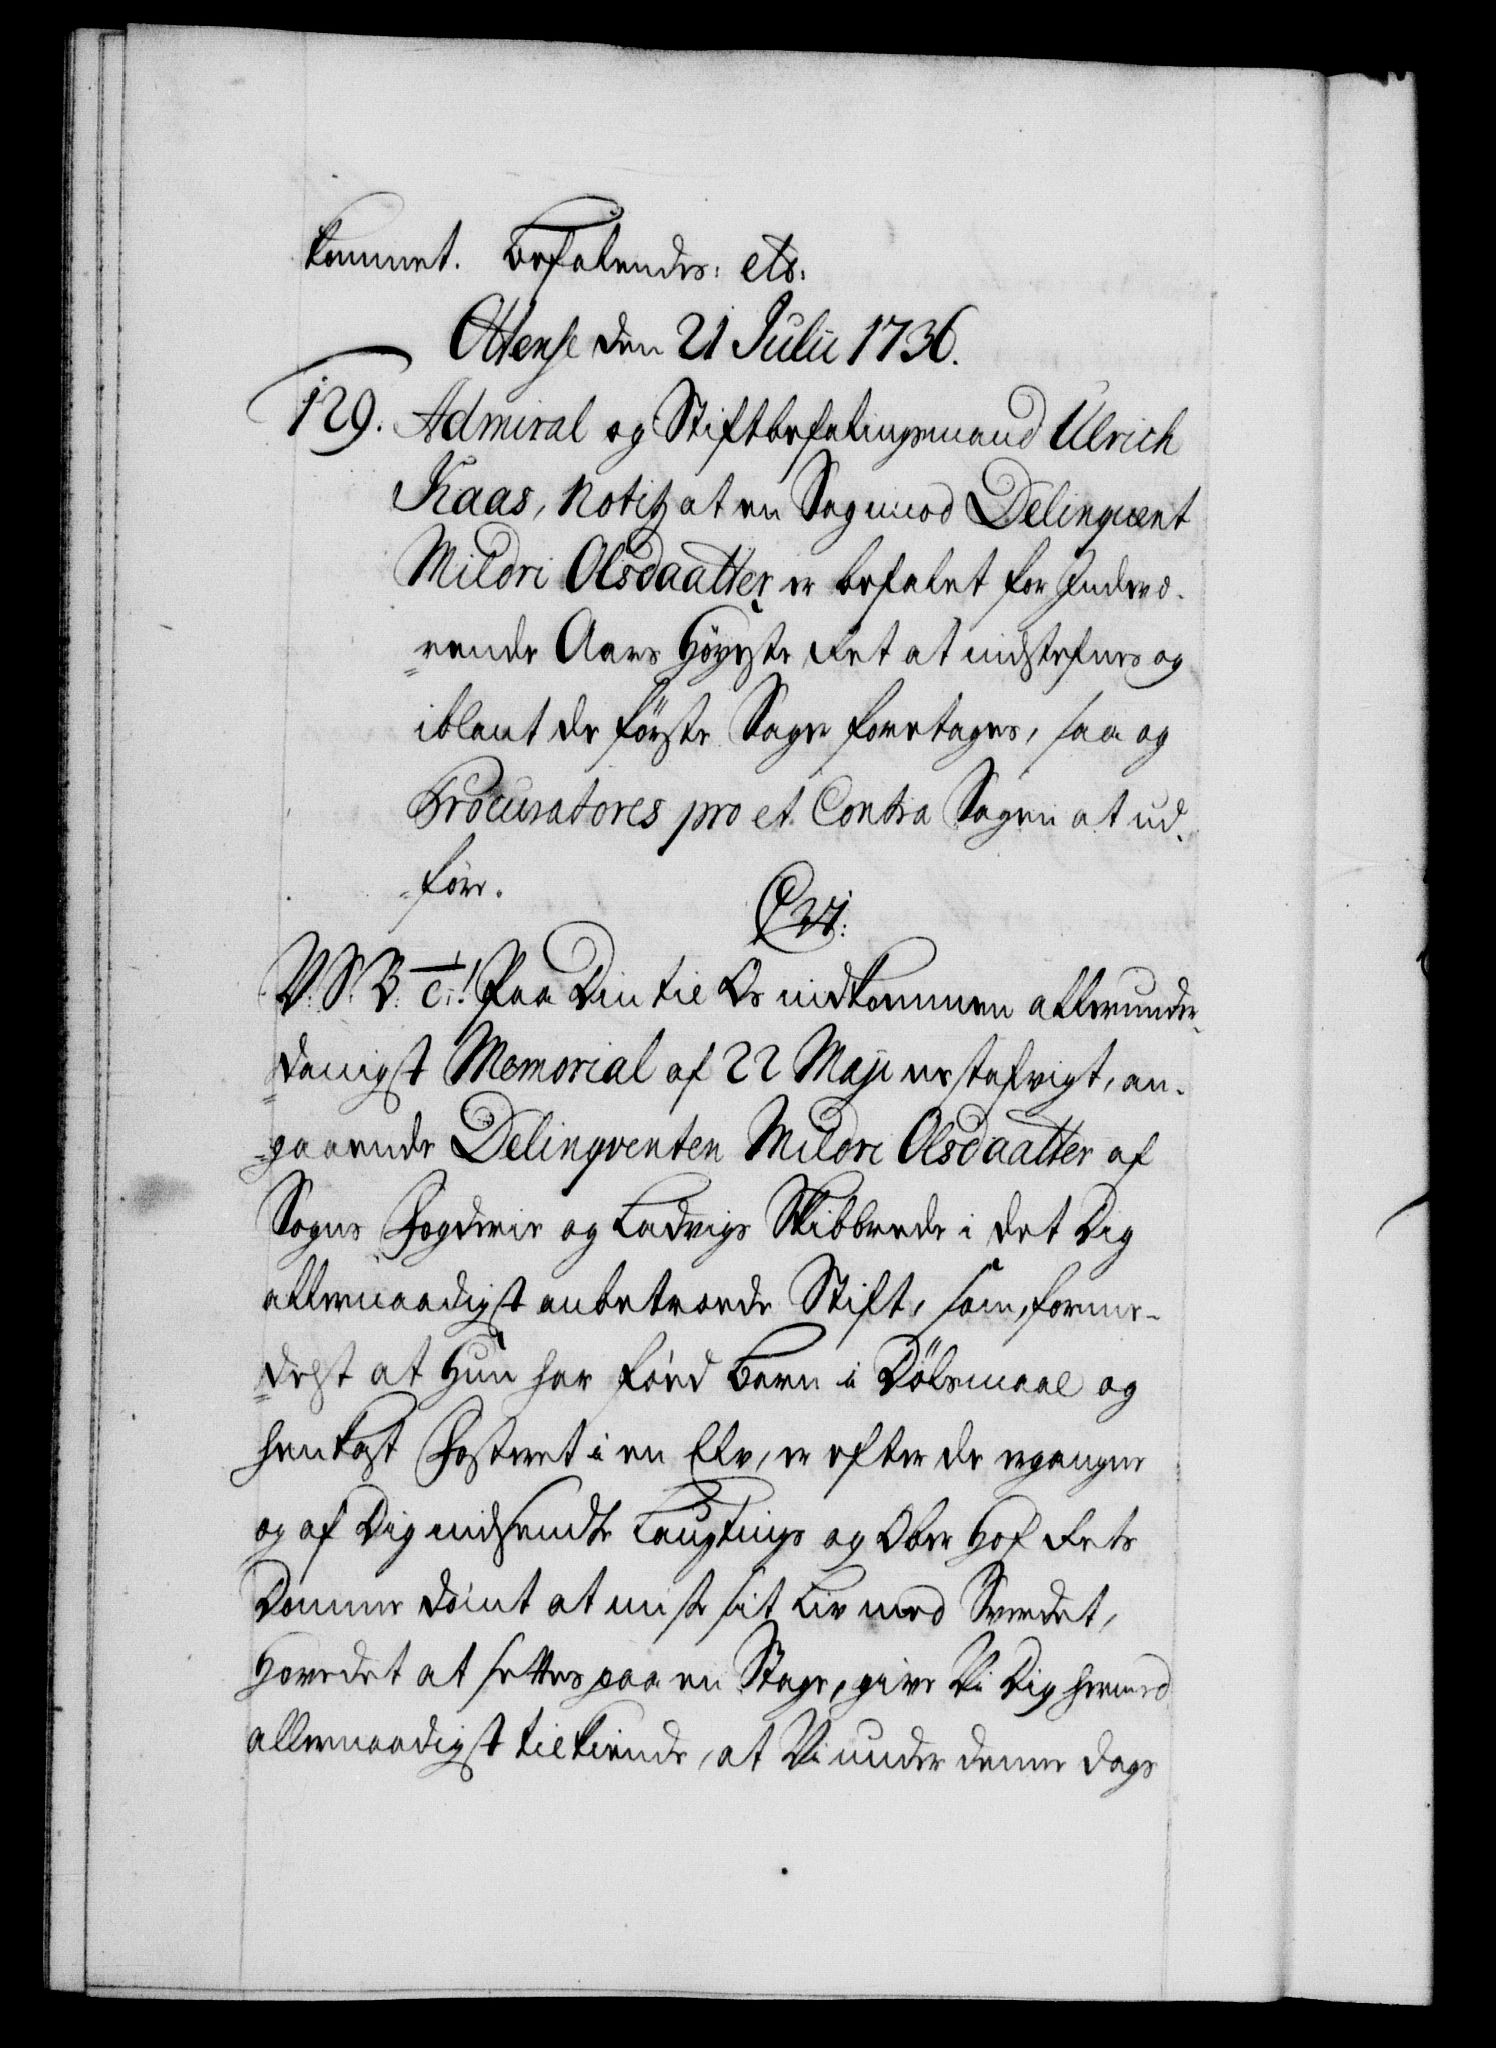 kommet. Befalendes: etc:
Ottense den 21 Julii 1736.
129. Admiral og Stiftbefalingsmand Ulrich
Kaas, Notitz at en Sag mod Delinqvent
Mildri Olsdaatter er befalet for Indevæ-
rende Aars Höyeste Ret at indstefnes og
iblant de förste Sager foretages, saa og
Procuratores pro et Contra Sagen at ud-
före.
C 6ti:
V. S. B. c:! Paa Din til Os indkommen allerunder-
danigst Memorial af 22 Maji nestafvigt, an-
gaaende Delinqventen Mildri Olsdaatter af
Sogns Fogderie og Ladvigs Skibbrede i det Dig
allernaadigst anbetroede Stift, som, forme-
delst at Hun har föed Barn i Dölsmaal og
henkast Fosteret i en Elv, er efter de ergangne
og af Dig indsendte Laugtings og Ober Hof Rets
Domme dömt at miste sit Liv med Sverdet,
Hovedet at settes paa en Stage, give Vi Dig hermed
allernaadigst tilkiende, at Vi under denne Dags